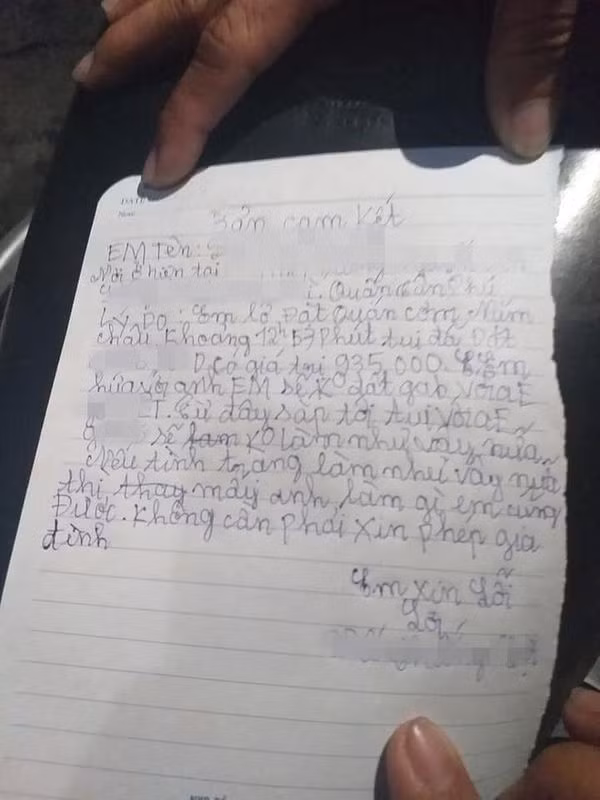 DATE
Bản cam kết
EM Tên:
Nơi ở hiện tại
Quận Tân Phú
Lý Do: Em lỡ Đặt Quán cơm Năm
châu Khoảng 12h 57 Phút tụi đã Đặt
D, Có giá trị 935,000. Em
hứa với anh EM sẽ Ko đặt gab, với aE
T. từ đây sắp tới tụi với aE
G sẽ làm KO làm như vậy nữa
Nếu tình trạng làm như vậy nữa
thì, thay mấy anh, làm gì em cũng
Được. Không cần phải xin phép gia
đình
Em xin Lỗi